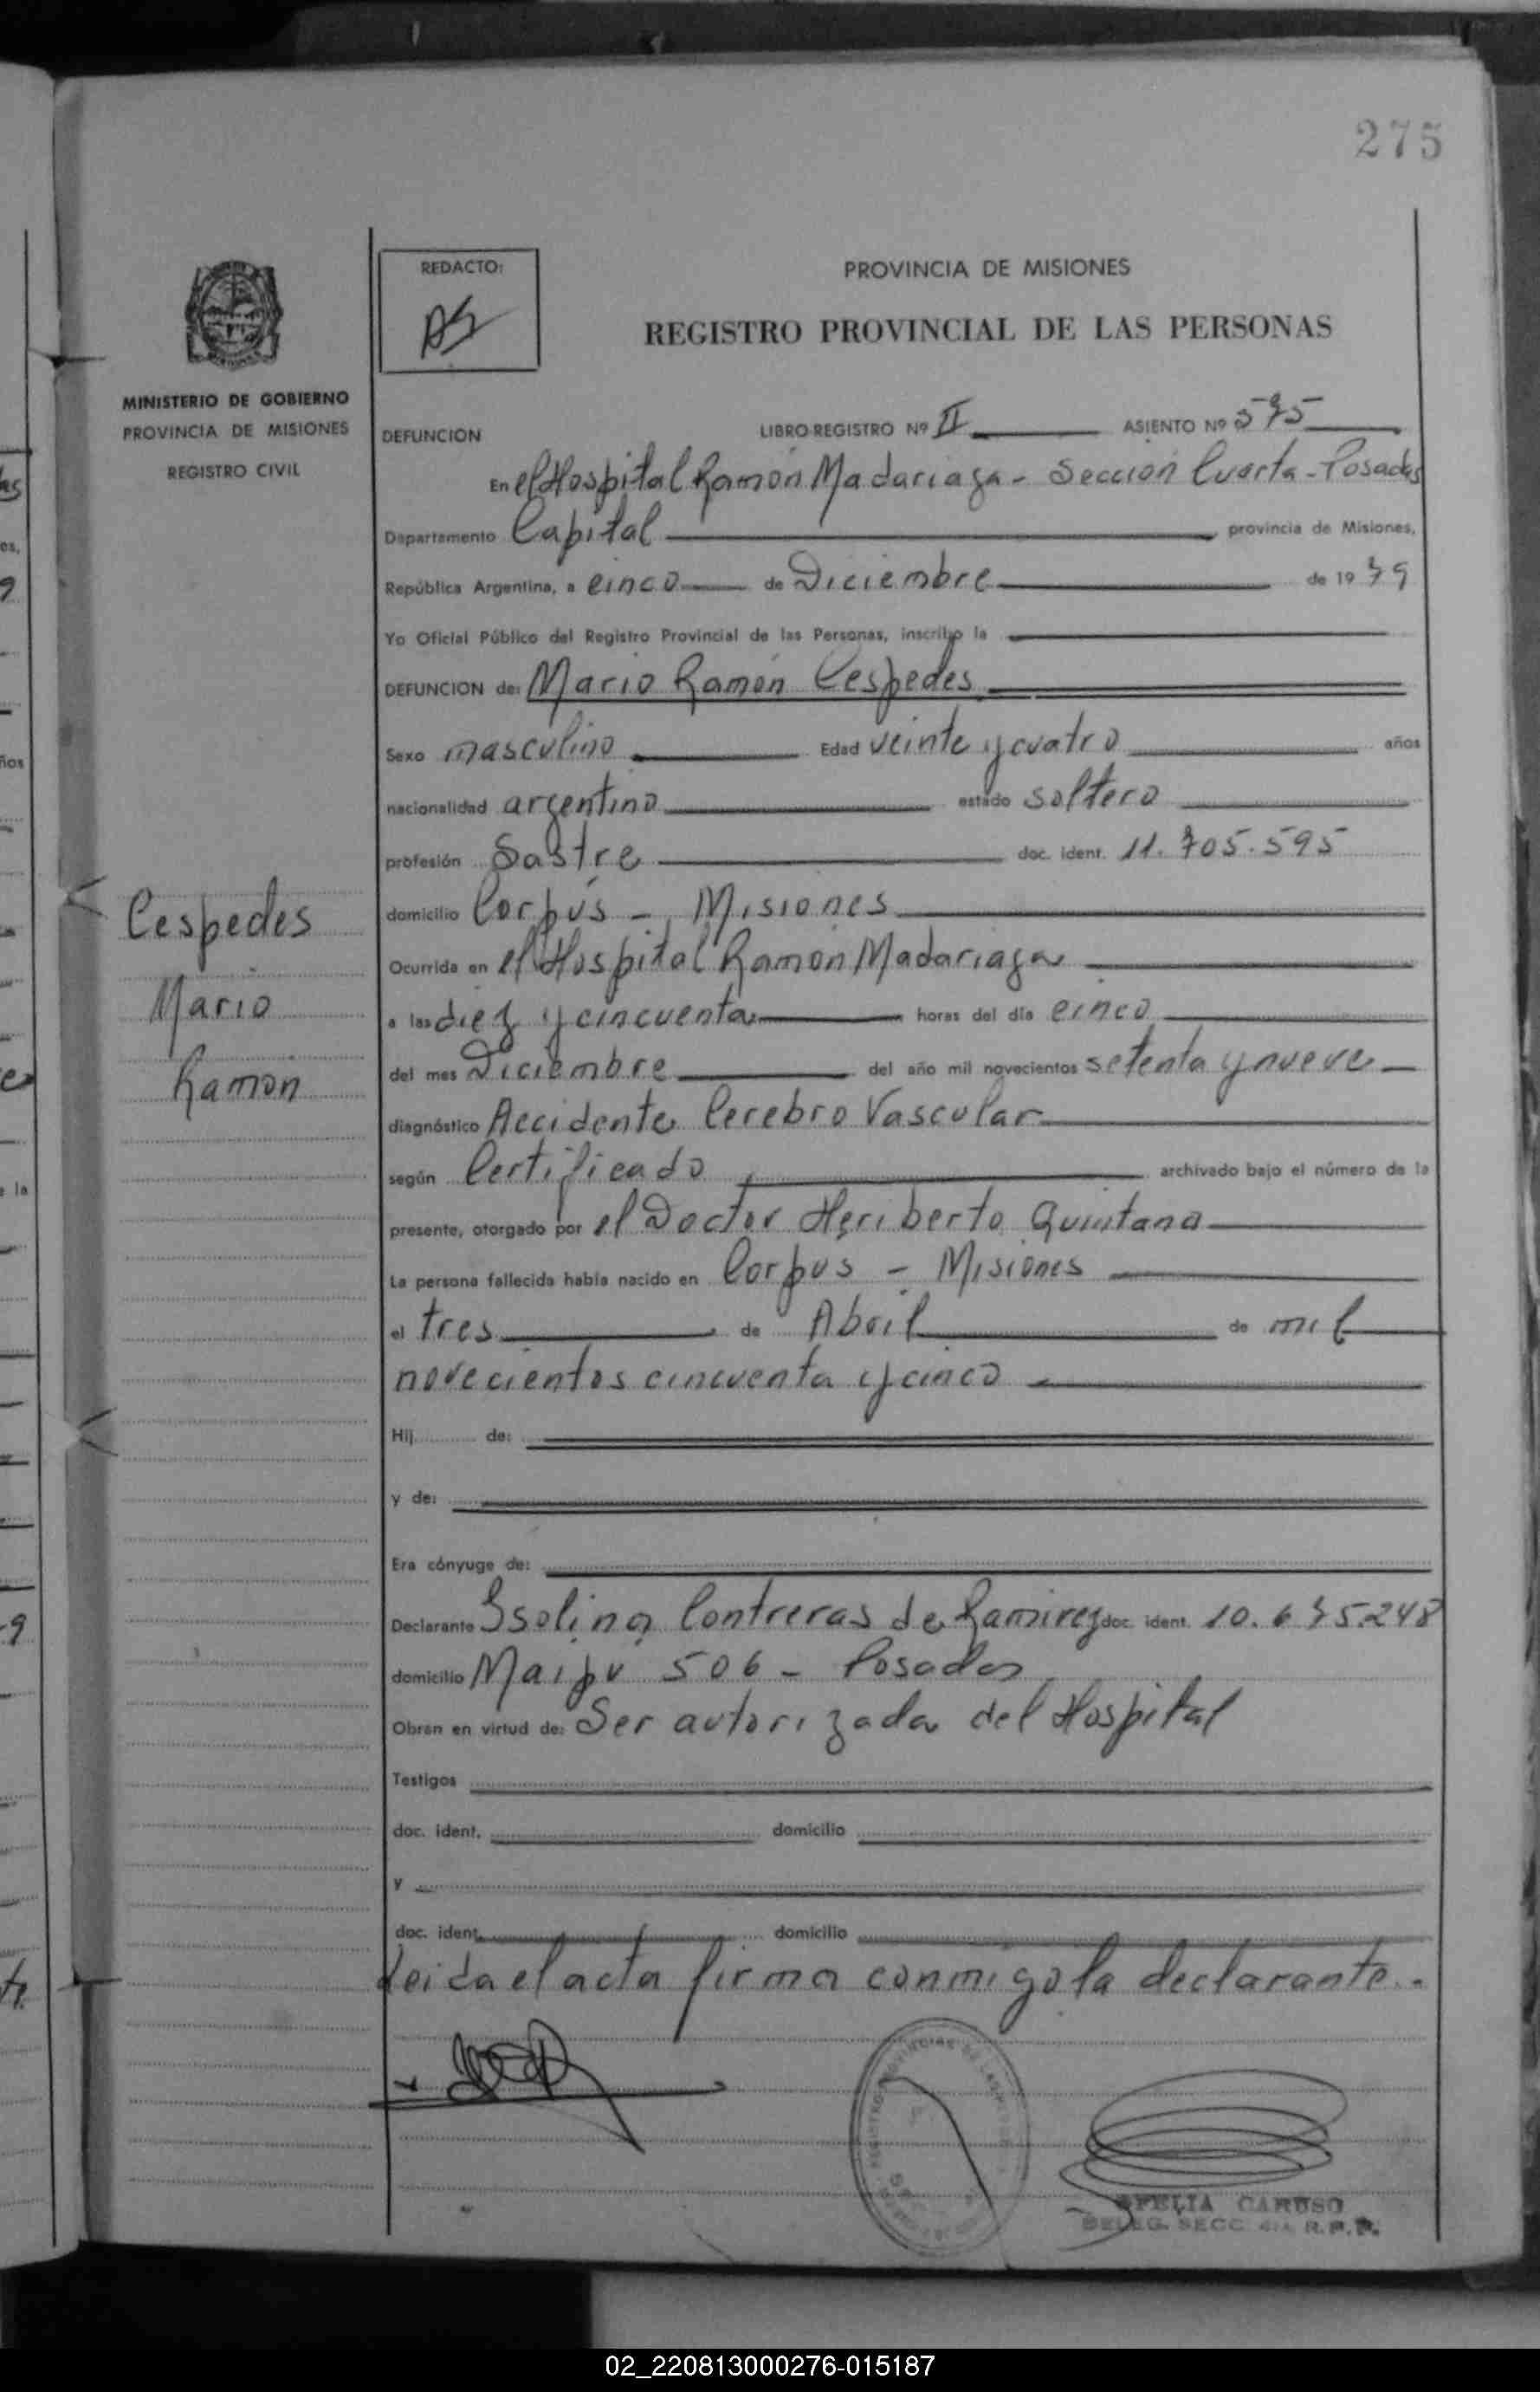 275
REDACTO:
PROVINCIA DE MISIONES
REGISTRO PROVINCIAL DE LAS PERSONAS
MINISTERIO DE GOBIERNO
PROVINCIA DE MISIONES
REGISTRO CIVIL
DEFUNCION LIBRO-REGISTRO Nº II ASIENTO Nº 575
En el Hospital Ramón Madariaga - Sección Cuarta - Posadas
Departamento Capital provincia de Misiones,
República Argentina, a cinco de Diciembre de 1979
Yo Oficial Público del Registro Provincial de las Personas, inscribo la
DEFUNCION de: Mario Ramón Cespedes
Sexo masculino Edad veinte y cuatro años
nacionalidad argentino estado soltero
profesión Sastre doc. ident. 11.705.595
domicilio Corpús - Misiones
Ocurrida en el Hospital Ramón Madariaga
a las diez y cincuenta horas del día cinco
del mes Diciembre del año mil novecientos setenta y nueve
diagnóstico Accidente Cerebro Vascular
según Certificado archivado bajo el número de la
presente, otorgado por el Doctor Heriberto Quintana
La persona fallecida había nacido en Corpus - Misiones
el tres de Abril de mil
novecientos cincuenta y cinco
Hij de:
y de:
Era cónyuge de:
Declarante Isolina Contreras de Ramirez doc. ident. 10.675.248
domicilio Maipu 506 - Posadas
Obran en virtud de: Ser autorizada del Hospital
Testigos
doc. ident. domicilio
y
doc. ident. domicilio
Leida el acta firma conmigo la declarante.-
Cespedes
Mario
Ramon
OFELIA CARUSO
DELEG. SECC. 4ta. R.P.P.
02_220813000276-015187